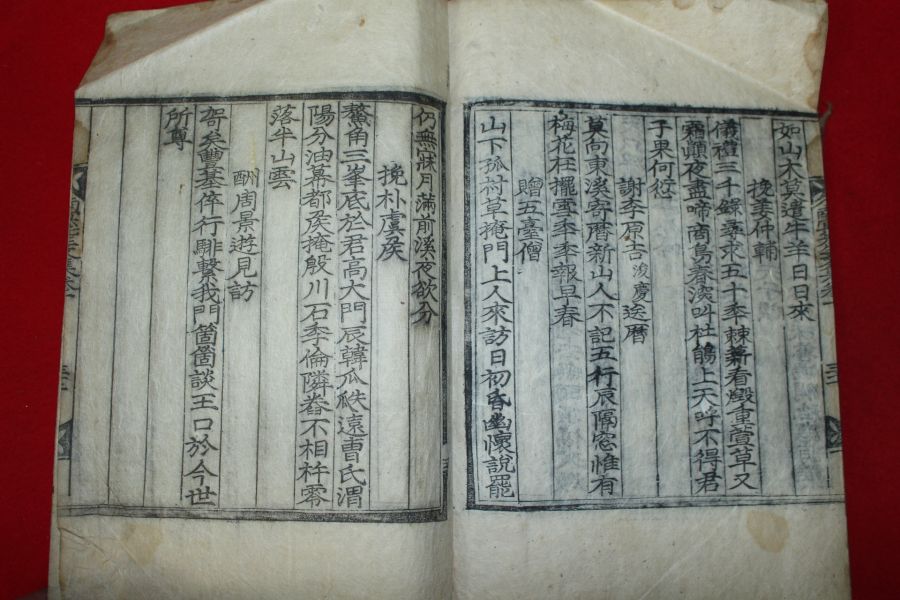 如山木莫遣牛羊日日來
挽姜仲輔
儀禮三千錄尋求五十季棘薪看燬重萱草又
霜顚夜盡啼商鳥春深叫杜鵑上天呼不得君
子果何愆
謝李原吉浚慶送曆
莫向東溪寄曆新山人不記五行辰隔窓惟有
梅花在擺雪季季報早春
贈五臺僧
山下孤村草掩門上人來訪日初昏幽懷說罷
仍無寐月滿前溪夜欲分
挽朴虞矦
鰲角三峯底於君高大門辰韓瓜瓞遠曺氏渭
陽分油幕都矦掩殷川石季倫隣舂不相杵零
落半山雲
酬周景遊見訪
駕矣豊基倅行騑繫我門箇箇談王口於今世
所尊